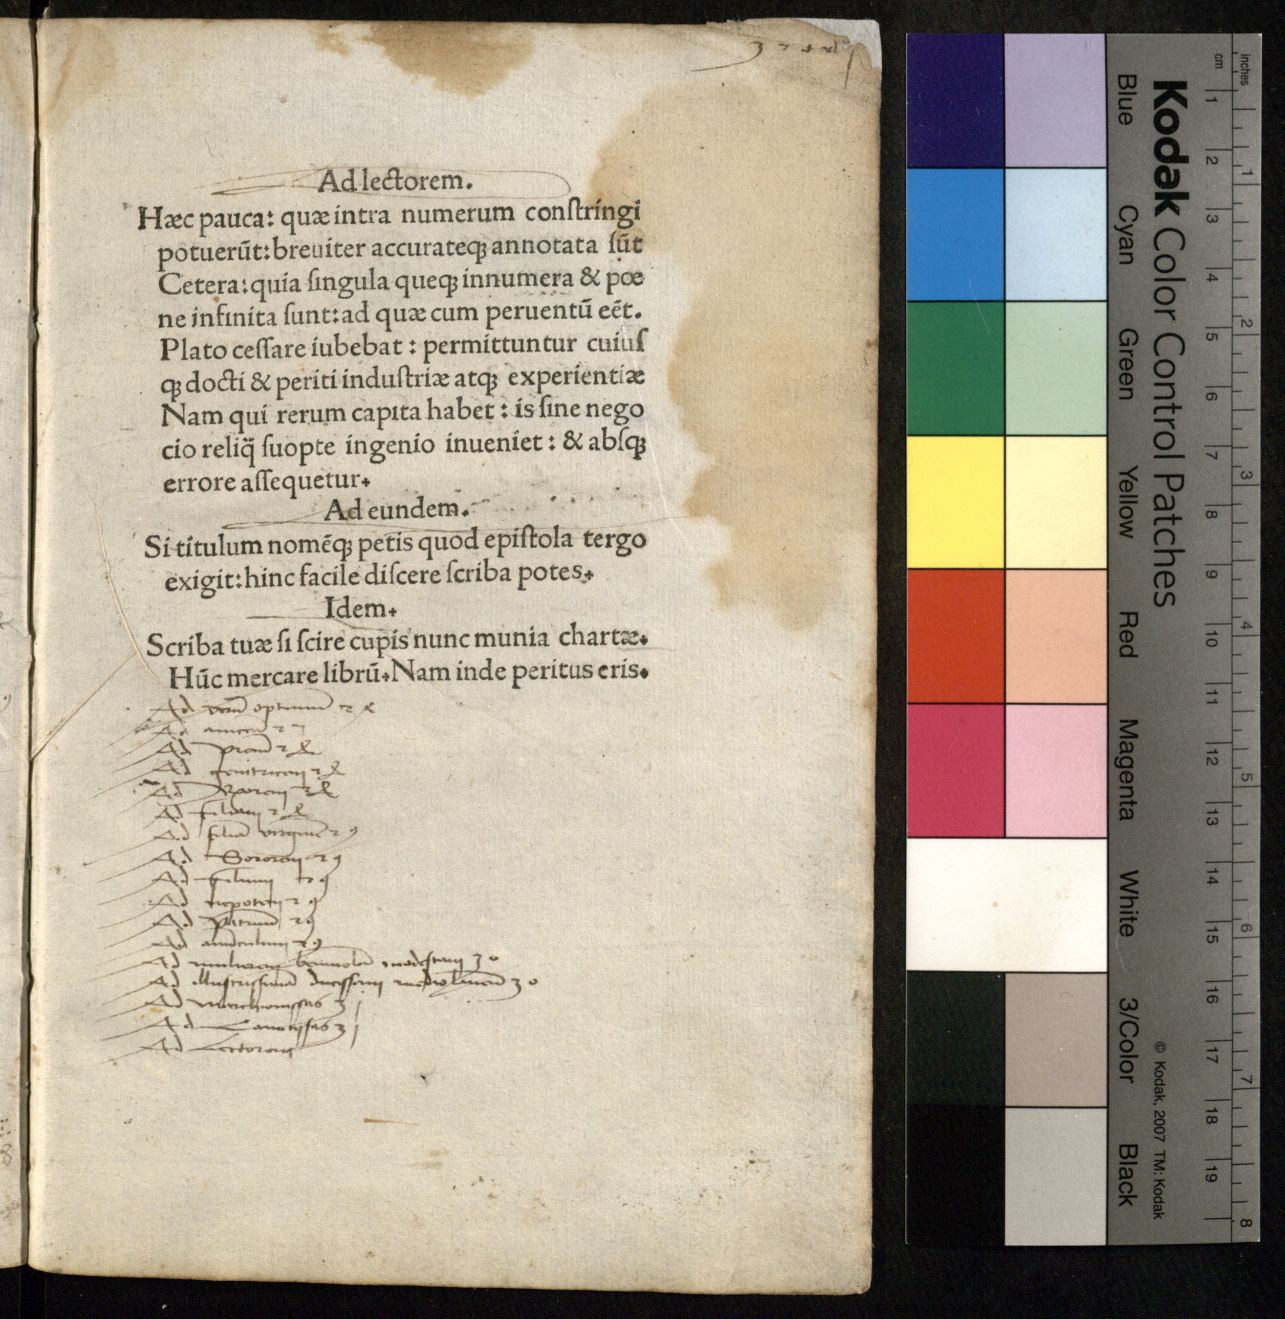 Ad lectorem.
Hæc pauca: quæ intra numerum conſtringi
potuerūt: breuiter accurateqꝫ annotata ſūt
Cetera: quia ſingula queqꝫ innumera & pœ
ne infinita ſunt: ad quæ cum peruentū eēt.
Plato ceſſare iubebat: permittuntur cuiuſ
qꝫ docti & periti induſtriæ atqꝫ experientiæ
Nam qui rerum capita habet: is ſine nego
cio reliq̄ ſuopte ingenio inueniet: & abſqꝫ
errore aſſequetur.
Ad eundem.
Si titulum nomēqꝫ petis quod epiſtola tergo
exigit: hinc facile diſcere ſcriba potes.
Idem.
Scriba tuæ ſi ſcire cupis nunc munia chartæ.
Hūc mercare librū. Nam inde peritus eris.
Ad
Ad
Ad
Ad
Ad
Ad
Ad
Ad Sororem 29
Ad filium 29
Ad nepotem 29
Ad
Ad
Ad 30
Ad 30
Ad
Ad
Ad Lectorem
Kodak Color Control Patches
Blue Cyan Green Yellow Red Magenta White 3/Color Black
© Kodak, 2007 TM: Kodak
cm 1 2 3 4 5 6 7 8 9 10 11 12 13 14 15 16 17 18 19
inches 1 2 3 4 5 6 7 8